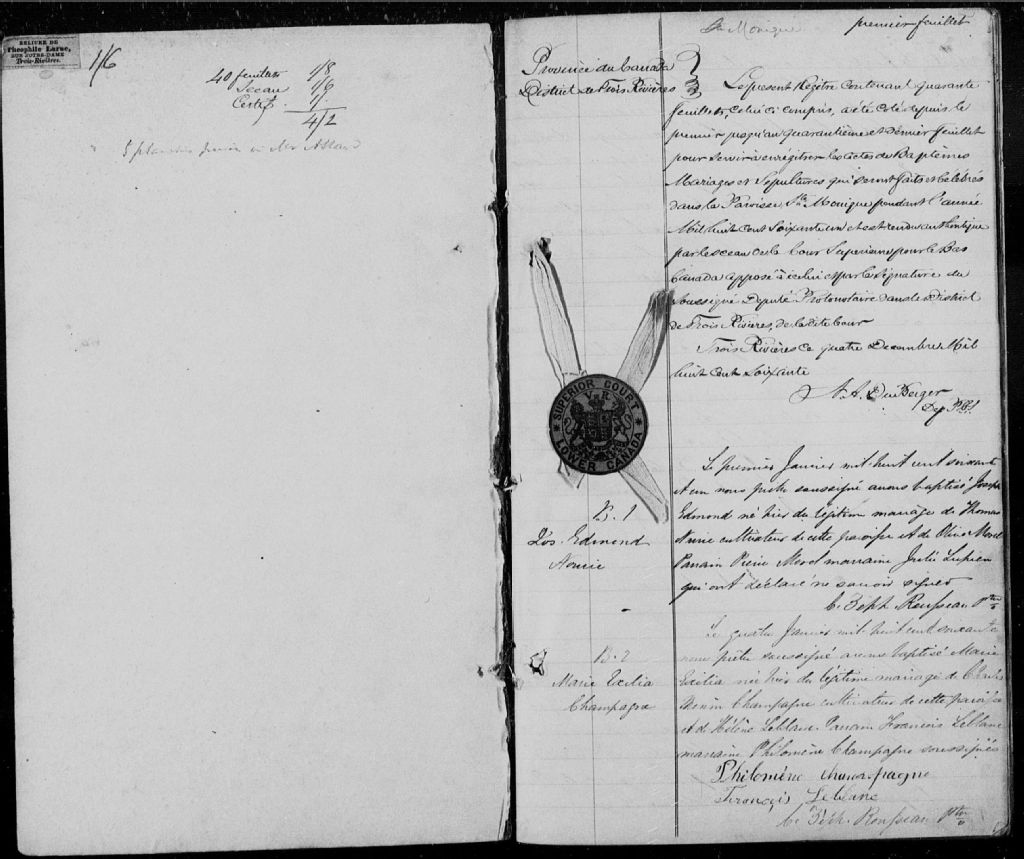 RELIURE DE
Théophile Larue,
RUE NOTRE-DAME
Trois-Rivières.
1/6
40 feuillets 1/8
Sceau 1/6
Certif. 1/.
4/2
Ste Monique
premier feuillet
Province du Canada
District de Trois Rivières
Le present Régitre contenant quarante
feuillets, celui ci compris, a été coté depuis le
premier jusqu'au quarantième et dernier feuillet
pour servir à enrégitrer les actes de Baptêmes
Mariages et Sépultures qui seront faits et celébrés
dans la Paroisse Ste Monique pendant l'année
Mil huit cent soixante un et est rendu authentique
par le sceau de la Cour Superieure pour le Bas
Canada apposé à icelui et par la signature du
soussigné Deputé Protonotaire dans le District
de Trois Rivières, de la dite Cour
Trois Rivières ce quatre Decembre Mil
huit cent soixante
SUPERIOR COURT
V R
LOWER CANADA
Le premier Janvier mil huit cent soixante
et un nous prêtre soussigné avons baptisé Joseph
B. 1
Edmond né hier du légitime mariage de Thomas
Jos. Edmond
cultivateur de cette paroisse et de Olive Morel
Parrain Pierre Morel marraine Julie Lupien
qui ont déclaré ne savoir signer
C. Zéph. Rousseau Ptre
Le quatre Janvier mil huit cent soixante
B. 2
nous prêtre soussigné avons baptisé Marie
Marie Exilia
Exilia née hier du légitime mariage de Charles
Champagne
Champagne cultivateur de cette paroisse
et de Hélène Leblanc Parrain Francois Leblanc
marraine Philomène Champagne soussignés
Philomène champagne
François Leblanc
C. Zéph. Rousseau Ptre